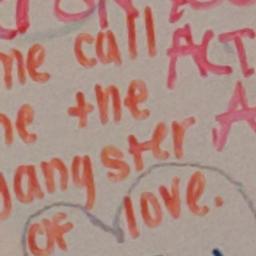 me call
the
gangster
of love.
ACT
A